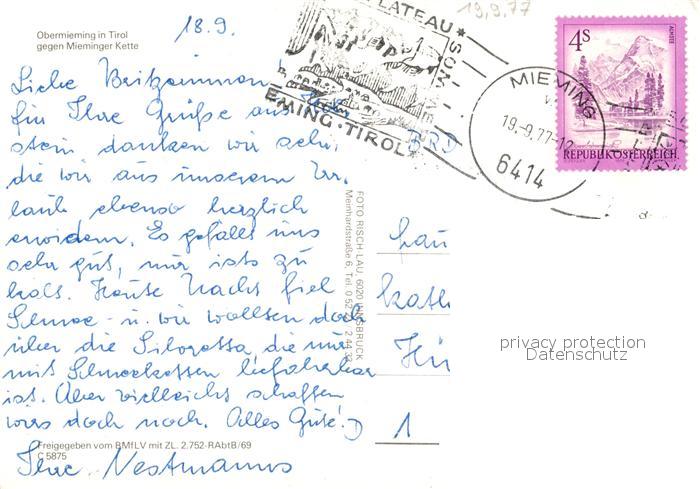 Obermieming in Tirol
gegen Mieminger Kette
18.9.
19.9.77
PLATEAU * SOM
EMING · TIROL
4s
REPUBLIK ÖSTERREICH
MIEMING
19.-9.77-12
6414
BRD
für Ihre Grüße aus
stein danken wir sehr,
die wir aus unserem Ur-
laub ebenso herzlich
erwidern. Es gefällt uns
sehr gut, nur ists zu
kalt. Heute Nacht fiel
Schnee u. wir wollten doch
über die Silvretta, die nur
mit Schneeketten befahrbar
ist. Aber vielleicht schaffen
wirs doch noch. Alles Gute!
Ihre
FOTO RISCH-LAU, 6020 INNSBRUCK
Meinhardstraße 6, Tel. 0 52 22
1
privacy protection
Datenschutz
Freigegeben vom BMfLV mit ZL. 2.752-RAbtB/69
C 5875